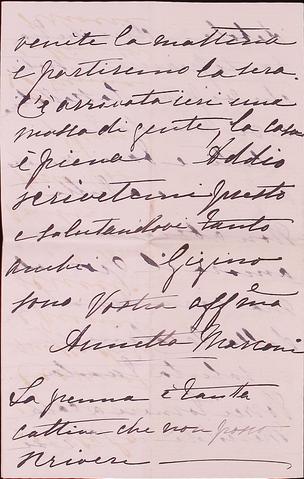 venite la mattina
e partiremo la sera.
C'è arrivata ieri una
massa di gente, la casa
è piena Addio
scrivetemi presto
e salutandovi tanto
anche Gigino
sono Vostra affma
Annetta Marconi
La penna è tanta
cattiva che non posso
scrivere —